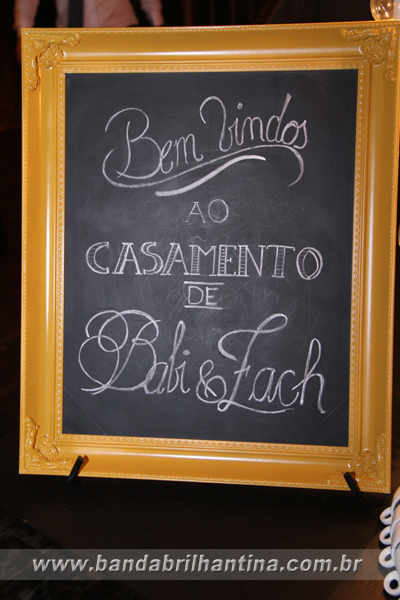 Bem Vindos
AO
CASAMENTO
DE
Babi & Zach
www.bandabrilhantina.com.br